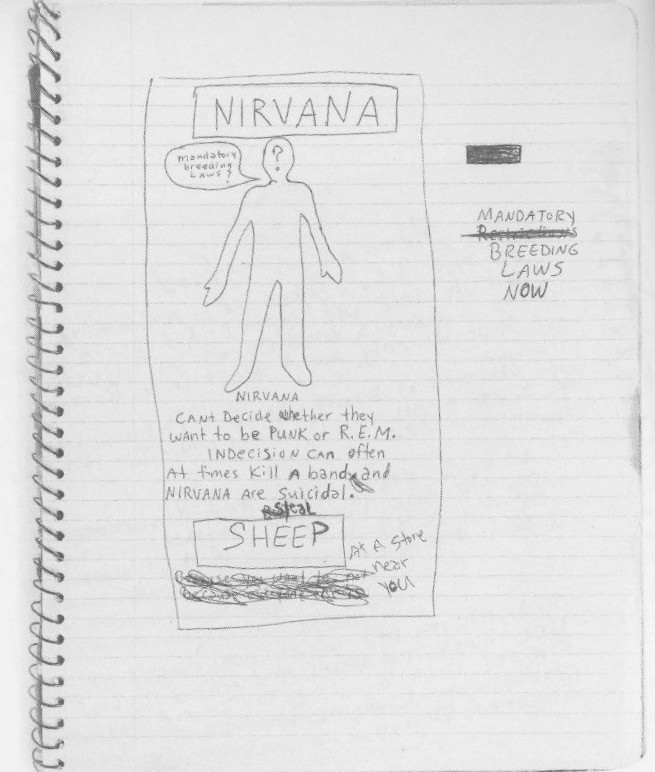 NIRVANA
mandatory
breeding
LAWS?
?
MANDATORY
BREEDING
LAWS
NOW
NIRVANA
CANT Decide whether they
WANT to be PUNK or R.E.M.
INDecision CAN often
At times Kill A band and
NIRVANA Are Suicidal.
steal
SHEEP
At A Store
near
YOU